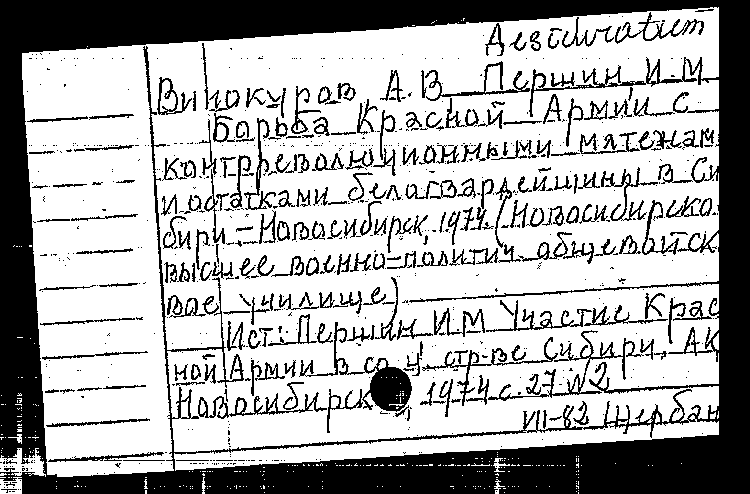 Desideratum
Винокуров А.В, Першин И.М
Борьба Красной Армии с
контрреволюционными мятежам
и остатками белогвардейщины в Си
бири.-Новосибирск, 1974. (Новосибирско
высшее военно-политич. общевойск
вое училище)
Ист: Першин И М Участие Крас
ной Армии в соц. стр-ве Сибири. АК
Новосибирск, 1974 с. 27 №2
VII-82 Щербан